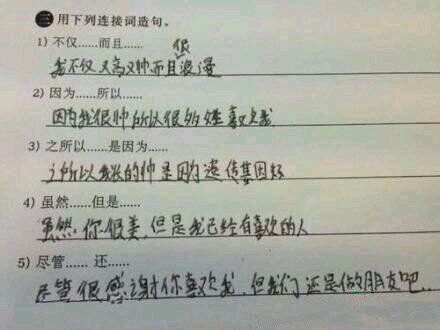 三 用下列连接词造句。
1) 不仅……而且……
很
我不仅又高又帅而且浪漫
2) 因为……所以……
因为我很帅所以很多女生喜欢我
3) 之所以……是因为……
之所以我长的帅是因为遗传基因好
4) 虽然……但是……
虽然你很美,但是我已经有喜欢的人
5) 尽管…… 还……
尽管很感谢你喜欢我,但我们还是做朋友吧..